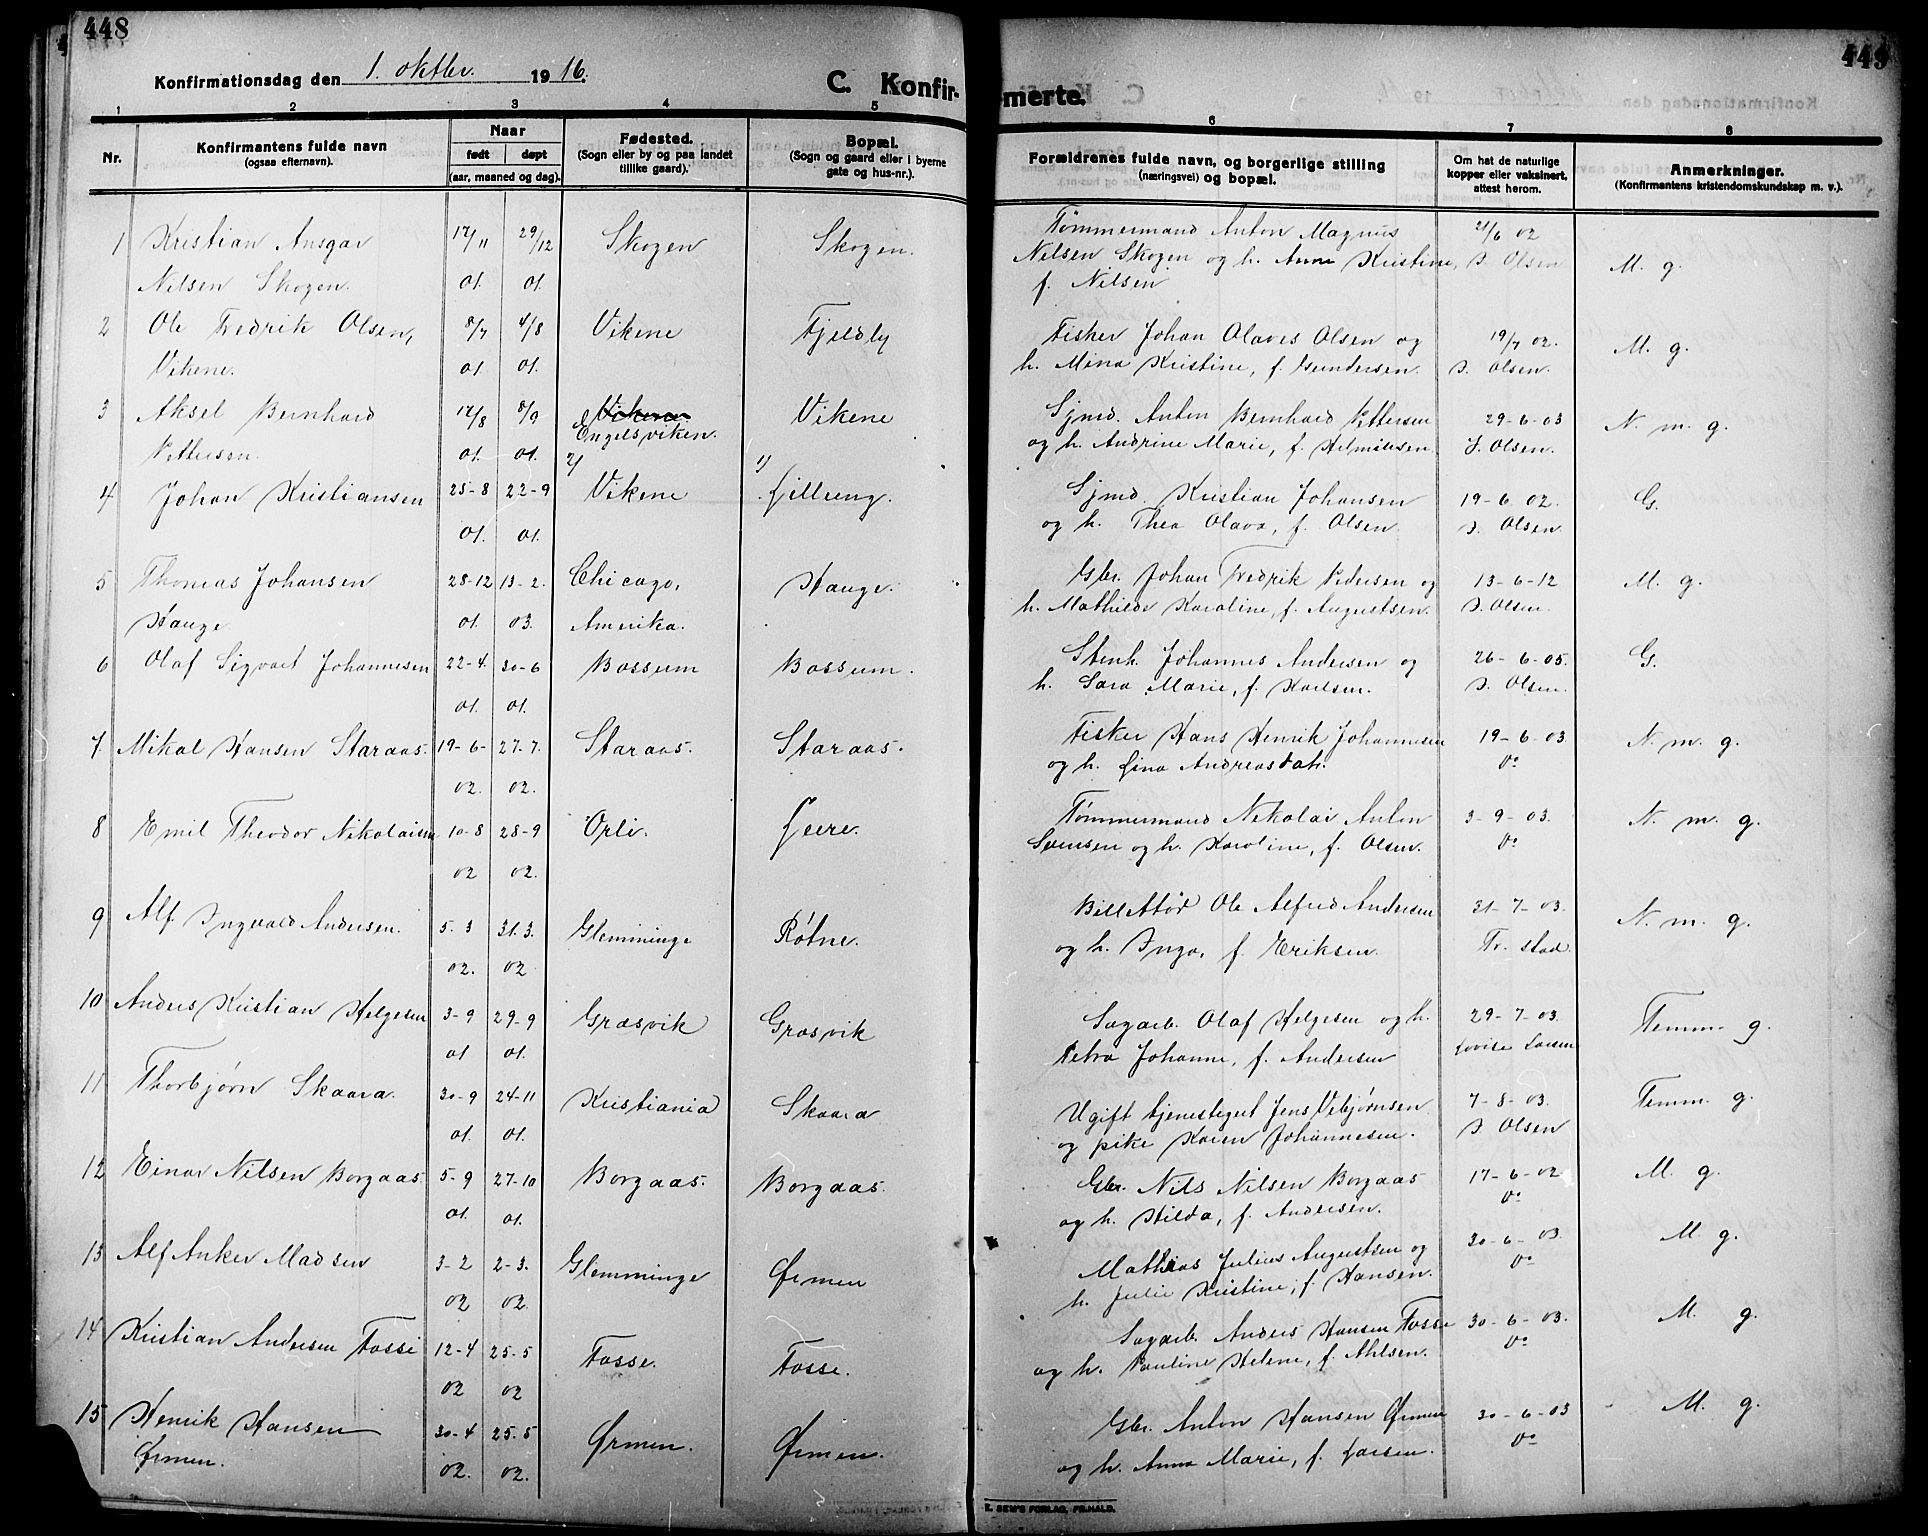 448
449
Konfirmationsdag den 1. oktbr. 1916.
C. Konfir-
merte.
1 2 3 4 5 6 7 8
Nr.
Konfirmantens fulde navn
(ogsaa efternavn).
Naar
født døpt
(aar, maaned og dag).
Fødested.
(Sogn eller by og paa landet
tillike gaard).
Bopæl.
(Sogn og gaard eller i byerne
gate og hus-nr.).
Forældrenes fulde navn, og borgerlige stilling
(næringsvei) og bopæl.
Om hat de naturlige
kopper eller vaksinert,
attest herom.
Anmerkninger.
(Konfirmantens kristendomskundskap m. v.).
1 Kristian Ansgar 17/11 29/12 Skogen Skogen. Tømmermand Anton Magnus 21/6 02
Nilsen Skogen. 01. 01. Nilsen Skogen og h. Anna Kristine, J. Olsen M. g.
f. Nilsen
2 Ole Fredrik Olsen, 8/7 4/8 Vikene Fjeldby Fisker Johan Olaves Olsen og 19/7 02. M. g.
Vikene. 01. 01. h. Mina Kristine, f. Gundersen. J. Olsen.
3 Aksel Bernhard 17/8 8/9 Vikene Vikene Sjmd. Anton Bernhard Pettersen 29-6-03 N. m. g.
Engelsviken.
Pettersen. 01. 01. og h. Andrine Marie, f. Helmiksen. J. Olsen.
2/ 1/
4 Johan Kristiansen 25-8 22-9 Vikene Lilleeng. Sjmd. Kristian Johansen 19-6 02. G.
01. 01. og h. Thea Olava, f. Olsen. J. Olsen.
5 Thomas Johansen 28-12 13-2. Chicago, Hauge. Gbr. Johan Fredrik Pedersen og 13-6-12 M. g.
Hauge 01. 03. Amerika. h. Mathilde Karoline, f. Augustsen. J. Olsen.
6 Olaf Sigvart Johannesen 22-4. 30-6 Bossum Bossum. Stenh. Johannes Andersen og 26-6-05. G.
01. 01. h. Sara Marie, f. Karlsen. J. Olsen.
7 Mikal Hansen Staraas. 19-6- 27-7. Staraas. Staraas. Fisker Hans Henrik Johannesen 19-6-03 N. m. g.
02. 02. og h. Lina Andreasdatr. Do
8 Emil Theodor Nikolaisen 10-8 28-9 Orli. Leere. Tømmermand Nikolai Anton 3-9-03. N. m. g.
02 02. Svensen og h. Karoline, f. Olsen. Do
9 Alf Ingvald Andersen. 5-3 31.3. Glemminge Røtne. Billettør Ole Alfred Andersen 31-7-03. N. m. g.
02. 02 og h. Inga, f. Eriksen. Fr. stad
10 Anders Kristian Helgesen 3-9 29-9 Græsvik Græsvik Sagarb. Olaf Helgesen og h. 29-7-03. Temm. g.
01 01. Petra Johanne, f. Andersen Lovise Larsen
11 Thorbjørn Skaara. 30-9 24-11 Kristiania Skaara Ugift tjenestegut Jens Vebjørnsen 7-8-03. Temm. g.
01. 01. og pike Karen Johannesen. J. Olsen
12 Einar Nilsen Borgaas. 5-9 27-10 Borgaas. Borgaas. Gbr. Nils Nilsen Borgaas 17-6-02 M. g.
01. 01. og h. Hilda, f. Andersen. Do
13 Alf Anker Madsen 3-2 2-3. Glemminge Ørmen Mathias Julius Augustsen og 30-6-03. M. g.
02 02. h. Julie Kristine, f. Hansen. Do
14 Kristian Andersen Fosse 12-4 25-5 Fosse. Fosse. Sagarb. Anders Hansen Fosse 30-6-03. M. g.
02 02 og h. Pauline Helene, f. Ahlsen. Do
15 Henrik Hansen 30-4 25.5 Ørmen. Ørmen. Gbr. Anton Hansen Ørmen 30-6-03 M. g.
Ørmen. 02. 02. og h. Anna Marie, f. Larsen. Do
E. SEM'S FORLAG, FR.HALD.